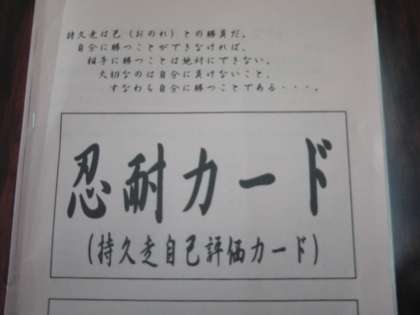 持久走は己（おのれ）との勝負だ。
自分に勝つことができなければ、
相手に勝つことは絶対にできない。
大切なのは自分に負けないこと、
すなわち自分に勝つことである・・・。
忍耐カード
（持久走自己評価カード）